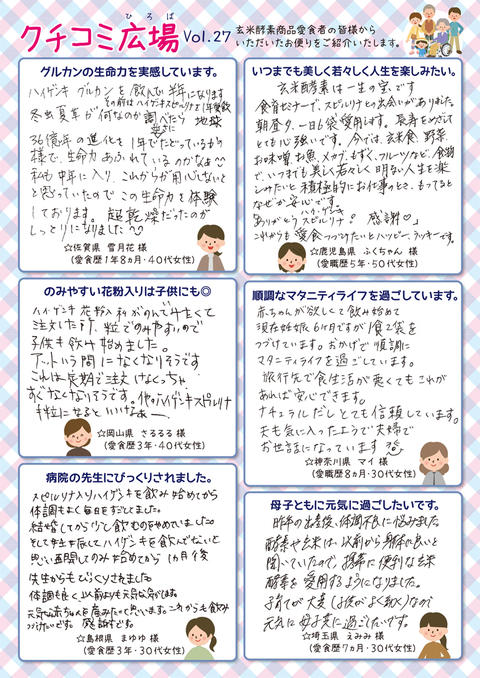 クチコミ広場
ひろば
Vol.27
玄米酵素商品愛食者の皆様から
いただいたお便りをご紹介いたします。
グルカンの生命力を実感しています。
ハイゲンキ グルカンを飲んで半年になります
その前はハイゲンキスピルリナを1年愛飲
冬虫夏草が何なのか調べたら 地球
36億年の進化を1年でたどっているかの
様で、生命力あふれているのかなぁ
私も中年に入り、これからが用心しないと
と思っていたのでこの生命力を体験
しております。超乾燥だったのが
しっとりになりました
☆佐賀県 雪月花 様
(愛食歴1年8カ月・40代女性)
いつまでも美しく若々しく人生を楽しみたい。
玄米酵素は一生の宝です
食育セミナーで、スピルリナとの出会いがありました。
朝昼夕、一日6袋愛用します。長寿をめざして
とても心強いです。今では、玄米食、野菜、
お味噌、お魚、メカブ、もずく、フルーツなど、食物
で、いつまでも美しく若々しく明るい人生を楽
しみたいと積極的にお仕事のとき、もってると
なぜか安心です。
ありがとう ハイ・ゲンキ スピルリナ! 感謝♡」
これからも愛食つづけたいとハッピー、ラッキーです。
☆鹿児島県 ふくちゃん 様
(愛職歴5年・50代女性)
のみやすい花粉入りは子供にも◎
ハイ・ゲンキ 花粉入
注文した所、粒でのみやすいので
子供も飲み始めました。
アッという間になくなりそうです
これは長期で注文しなくっちゃ
すぐなくなりそうです。他のハイゲンキスピルリナ
も粒になるといいなぁー
☆岡山県 さるるる 様
(愛食歴3年・40代女性)
順調なマタニティライフを過ごしています。
赤ちゃんが欲しくて飲み始めて
現在妊娠6ヶ月ですが1食2袋を
つづけています。おかげで順調に
マタニティライフを過ごしています。
旅行先で食生活が悪くてもこれが
あれば安心できます。
ナチュラルだしとても信頼しています。
夫も気に入ったようで夫婦で
お世話になっています
☆神奈川県 マイ 様
(愛職歴8カ月・30代女性)
病院の先生にびっくりされました。
スピルリナ入りハイゲンキを飲み始めてから
体調もよく毎日をすごしてました。
結婚してから少し飲むのをやめていました
そして妊娠してハイゲンキを飲んでないと
思い再開してのみ始めてから1カ月後
先生からもびっくりされました
体調も良く以前よりも元気な気がします。
元気な赤ちゃんを産みたいと思います。これからも飲み
つづけたいです。感謝です。
☆島根県 まゆゆ 様
(愛食歴3年・30代女性)
母子ともに元気に過ごしたいです。
昨年の出産後、体調不良に悩みました
酵素や玄米は、以前から身体に良いと
聞いていたので、携帯に便利な玄米
酵素を愛用するようになりました。
子育てが大変(子供がよく動く)なので
元気に母子共に過ごしたいです。
☆埼玉県 えみみ 様
(愛食歴7カ月・30代女性)